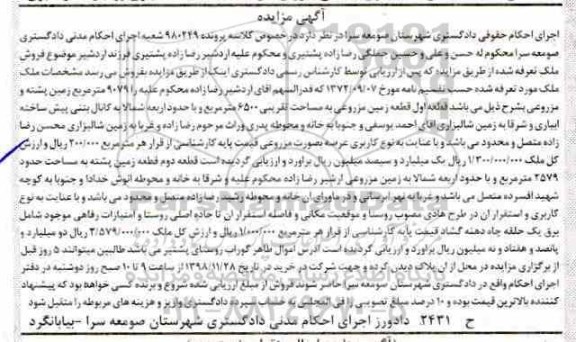 آگهی مزایده
اجرای احکام حقوقی دادگستری شهرستان صومعه سرا در نظر دارد در خصوص کلاسه پرونده ۹۸۰۲۴۹ شعبه اجرای احکام مدنی دادگستری
صومعه سرا محکوم له حسن و علی و حسین جملگی رضا زاده پشتیری و محکوم علیه اردشیر رضا زاده پشتیری فرزند اردشیر موضوع فروش
ملک تعرفه شده از طریق مزایده که پس از ارزیابی توسط کارشناس رسمی دادگستری اینک از طریق مزایده بفروش می رسد مشخصات ملک
ملک مورد تعرفه شده حسب تقسیم نامه مورخ ۱۳۷۲/۰۹/۰۷ که قدرالسهم آقای اردشیر رضا زاده محکوم علیه را ۹۰۷۹ مترمربع زمین پشته و
مزروعی بشرح ذیل می باشد قطعه اول قطعه زمین مزروعی به مساحت تقریبی ۶۵۰۰ مترمربع و با حدود اربعه شمالا به کانال بتنی پیش ساخته
ابیاری و شرقا به زمین شالیزاری اقای احمد یوسفی و جنوبا به خانه و محوطه پدری وراث مرحوم رضا زاده و غربا به زمین شالیزاری محسن رضا
زاده متصل و محدود می باشد و با عنایت به نوع کاربری عرصه بصورت مزروعی قیمت پایه کارشناسی از قرار هر مترمربع ۲۰۰/۰۰۰ ریال و ارزش
کل ملک ۱/۳۰۰/۰۰۰/۰۰۰ ریال یک میلیارد و سیصد میلیون ریال براورد و ارزیابی گردیده است قطعه دوم قطعه زمین پشته به مساحت حدود
۲۵۷۹ مترمربع و با حدود اربعه شمالا به زمین مزروعی ارشیر رضا زاده محکوم علیه و شرقا به خانه و محوطه انوش خدادا و جنوبا به کوچه
شهید افسر ده متصل می باشد و غربا به نهر ابرسانی و در ماورای آن خانه و محوطه رشید رضا زاده متصل و محدود می باشد و با عنایت به نوع
کاربری و استقرار ان در طرح هادی مصوب روستا و موقعیت مکانی و فاصله استقرار ان تا جاده اصلی روستا و امتیازات رفاهی موجود شامل
برق یک حلقه چاه دهنه گشاد قیمت پایه کارشناسی از قرار هر مترمربع ۱/۰۰۰/۰۰۰ ریال و ارزش کل ملک ۲/۵۷۹/۰۰۰/۰۰۰ ریال دو میلیارد و
پانصد و هفتاد و نه میلیون ریال براورد و ارزیابی گردیده است آدرس اموال طاهر گوراب روستای پشتیر می باشد طالبین میتوانند ۵ روز قبل
از برگزاری مزایده در محل از ان پلاک دیدن کرده و جهت شرکت در خرید در تاریخ ۱۳۹۸/۱۱/۲۸ از ساعت ۹ تا ۱۰ صبح روز دوشنبه در دفتر
اجرای احکام واقع در دادگستری صومعه سرا حاضر شوند فروش از مبلغ ارزیابی شده شروع و برنده کسی خواهد بود که پیشنهاد
کننده بالاترین قیمت بوده و ۱۰ درصد مبلغ تصویبی را فی المجلس به حساب سپرده دادگستری واریز و هزینه های مربوطه را متقبل شود
ح ۲۴۳۱ دادورز اجرای احکام مدنی دادگستری شهرستان صومعه سرا -بیابانگرد